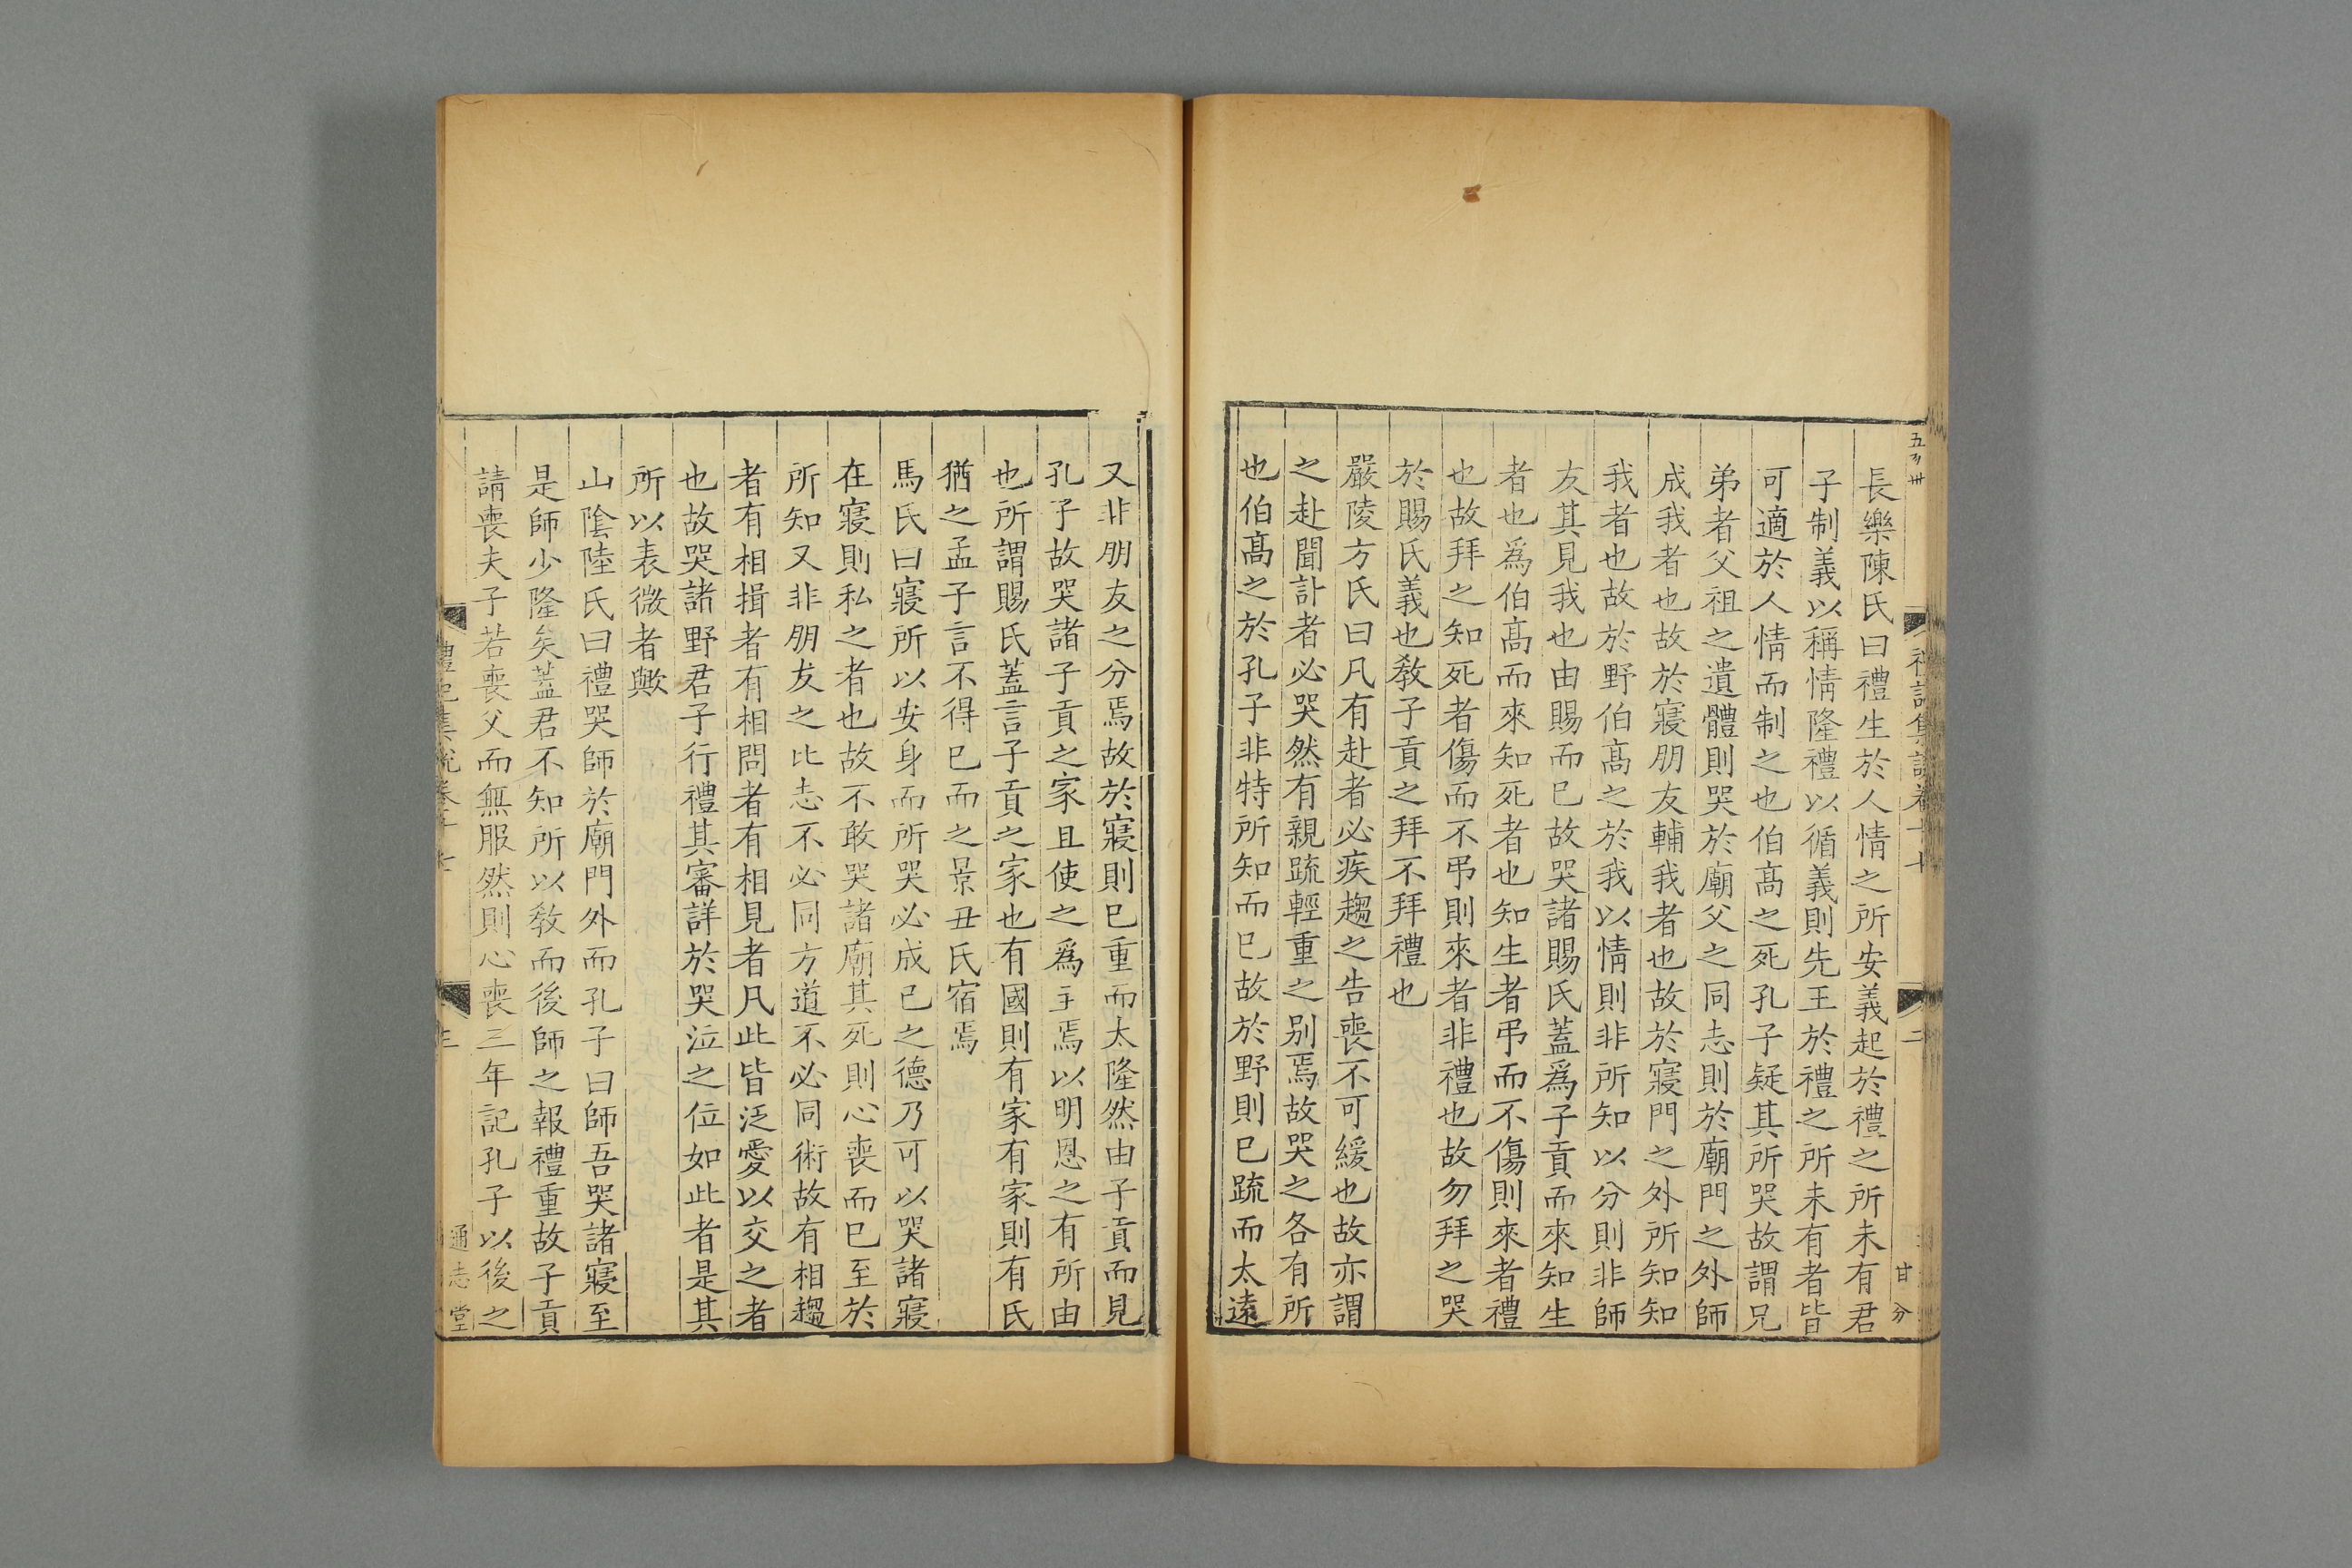 長樂陳氏曰禮生於人情之所安義起於禮之所未有君
子制義以稱情隆禮以循義則先王於禮之所未有者皆
可適於人情而制之也伯髙之死孔子疑其所哭故謂兄
弟者父祖之遺體則哭於廟父之同志則於廟門之外師
成我者也故於寢朋友輔我者也故於寢門之外所知知
我者也故於野伯髙之於我以情則非所知以分則非師
友其見我也由賜而已故哭諸賜氏蓋爲子貢而來知生
者也爲伯髙而來知死者也知生者弔而不傷則來者禮
也故拜之知死者傷而不弔則來者非禮也故勿拜之哭
於賜氏義也敎子貢之拜不拜禮也
嚴陵方氏曰凡有赴者必疾趨之告喪不可緩也故亦謂
之赴聞訃者必哭然有親疏輕重之别焉故哭之各有所
也伯髙之於孔子非特所知而已故於野則已疏而太遠
又非朋友之分焉故於寢則已重而太隆然由子貢而見
孔子故哭諸子貢之家且使之爲主焉以明恩之有所由
也所謂賜氏蓋言子貢之家也有國則有家有家則有氏
猶之孟子言不得已而之景丑氏宿焉
馬氏曰寢所以安身而所哭必成已之德乃可以哭諸寢
在寢則私之者也故不敢哭諸廟其死則心喪而已至於
所知又非朋友之比志不必同方道不必同術故有相趨
者有相揖者有相問者有相見者凡此皆泛愛以交之者
也故哭諸野君子行禮其審詳於哭泣之位如此者是其
所以表微者歟
山陰陸氏曰禮哭師於廟門外而孔子曰師吾哭諸寢至
是師少隆矣蓋君不知所以敎而後師之報禮重故子貢
請喪夫子若喪父而無服然則心喪三年記孔子以後之
禮記集說卷十七
三
通志堂